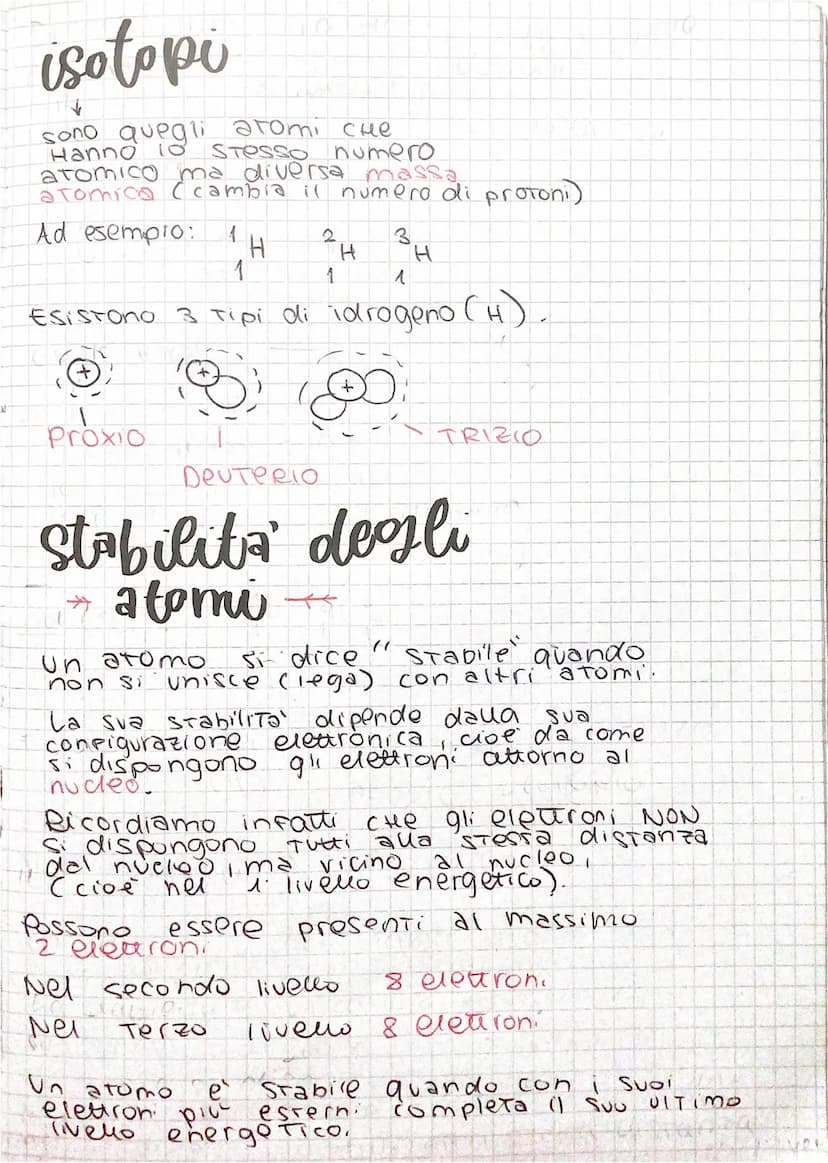 isotopi
sono quegli atomi che
Hanno lo stesso numero
atomico ma diversa massa
atomica (cambia il numero di protoni)
Ad esempio: 1 H 2 H 3 H
1 1 1
Esistono 3 tipi di idrogeno (H).
+ + +
Proxio TRIZIO
Deuterio
stabilita' degli
atomi
Un atomo si dice "stabile" quando
non si unisce (lega) con altri atomi.
La sua stabilità dipende dalla sua
configurazione elettronica, cioè da come
si dispongono gli elettroni attorno al
nucleo.
Ricordiamo infatti che gli elettroni NON
si dispongono tutti alla stessa distanza
dal nucleo, ma vicino al nucleo,
(cioè nel 1° livello energetico).
Possono essere presenti al massimo
2 elettroni
Nel secondo livello 8 elettroni
Nel terzo livello 8 elettroni
Un atomo e' stabile quando con i suoi
elettroni più esterni completa il suo ultimo
livello energetico.